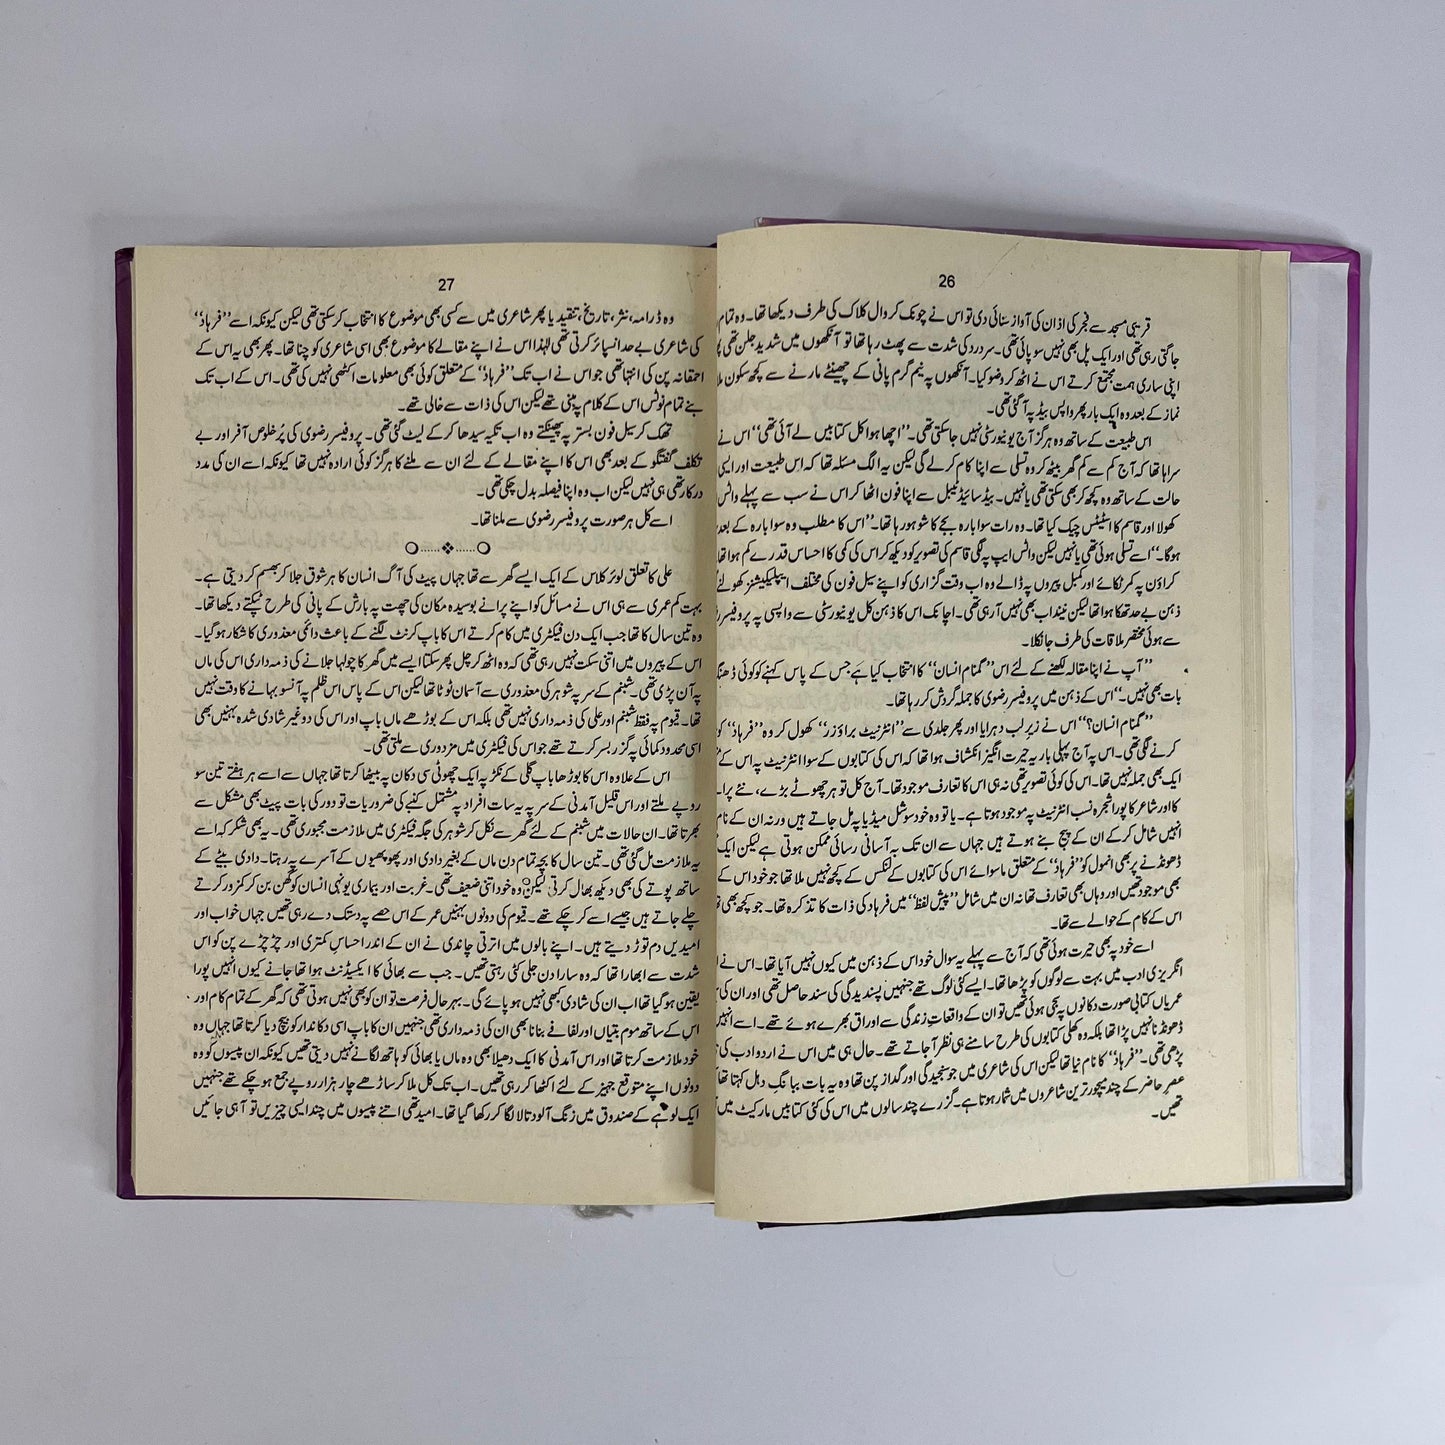 26
قریبی مسجد سے فجر کی اذان کی آواز سنائی دی تو اس نے چونک کر وال کلاک کی طرف دیکھا تھا۔ وہ تمام
جاگتی رہی تھی اور ایک پل بھی نہیں سو پائی تھی۔ سر درد کی شدت سے پھٹ رہا تھا تو آنکھوں میں شدید جلن تھی
اپنی ساری ہمت مجتمع کرتے اس نے اٹھ کر وضو کیا۔ آنکھوں پہ نیم گرم پانی کے چھینٹے مارنے سے کچھ سکون
نماز کے بعد وہ ایک بار پھر واپس بیڈ پہ آ گئی تھی۔
اس طبیعت کے ساتھ وہ ہرگز آج یونیورسٹی نہیں جا سکتی تھی۔ ’’اچھا ہوا کل کتابیں لے آئی تھی‘‘ اس نے
سراہا تھا کہ آج کم سے کم گھر بیٹھ کر وہ تسلی سے اپنا کام کر لے گی لیکن یہ الگ مسئلہ تھا کہ اس طبیعت اور ایسی
حالت کے ساتھ وہ کچھ کر بھی سکتی تھی یا نہیں۔ بیڈ سائیڈ ٹیبل سے اپنا فون اٹھا کر اس نے سب سے پہلے واٹس
کھولا اور قاسم کا اسٹیٹس چیک کیا تھا۔ وہ رات سوا بارہ بجے کا شو ہو رہا تھا۔ ’’اس کا مطلب وہ سوا بارہ کے بعد
ہوگا۔‘‘ اسے تسلی ہوئی تھی یا نہیں لیکن واٹس ایپ پہ لگی قاسم کی تصویر کو دیکھ کر اس کی کمی کا احساس قدرے کم ہوا تھا
کراؤن پہ کمر ٹکائے اور کمبل پیروں پہ ڈالے وہ اب وقت گزاری کو اپنے سیل فون کی مختلف ایپلیکیشنز کھولنے
ذہن بے حد تھکا ہوا تھا لیکن نیند اب بھی نہیں آ رہی تھی۔ اچانک اس کا ذہن کل یونیورسٹی سے واپسی پہ پروفیسر
سے ہوئی مختصر ملاقات کی طرف جا نکلا۔
’’آپ نے اپنا مقالہ لکھنے کے لئے اس ’’گمنام انسان‘‘ کا انتخاب کیا ہے جس کے پاس کہنے کو کوئی ڈھنگ
بات بھی نہیں۔‘‘ اس کے ذہن میں پروفیسر رضوی کا جملہ گردش کر رہا تھا۔
’’گمنام انسان؟‘‘ اس نے زیر لب دہرایا اور پھر جلدی سے ’’انٹرنیٹ براؤزر‘‘ کھول کر وہ ’’فرہاد‘‘ کو
کرنے لگی تھی۔ اس پہ آج پہلی بار یہ حیرت انگیز انکشاف ہوا تھا کہ اس کی کتابوں کے سوا انٹرنیٹ پہ اس کے
ایک بھی جملہ نہیں تھا۔ اس کی کوئی تصویر تھی نہ ہی اس کا تعارف موجود تھا۔ آج کل تو ہر چھوٹے بڑے، نئے
کا اور شاعر کا پورا شجرہ نسب انٹرنیٹ پہ موجود ہوتا ہے۔ یا تو وہ خود سوشل میڈیا پہ مل جاتے ہیں ورنہ ان کے نام
انہیں شامل کر کے ان کے پیج بنے ہوتے ہیں جہاں سے ان تک بہ آسانی رسائی ممکن ہوتی ہے لیکن ایک
ڈھونڈنے پر بھی انمول کو ’’فرہاد‘‘ کے متعلق ماسوائے اس کی کتابوں کے لنکس کے کچھ نہیں ملا تھا جو خود اس کے
بھی موجود تھیں اور وہاں بھی تعارف تھا نہ ان میں شامل ’’پیش لفظ‘‘ میں فرہاد کی ذات کا تذکرہ تھا۔ جو کچھ بھی
اس کے کام کے حوالے سے تھا۔
اسے خود پہ بھی حیرت ہوئی تھی کہ آج سے پہلے یہ سوال خود اس کے ذہن میں کیوں نہیں آیا تھا۔ اس نے
انگریزی ادب میں بہت سے لوگوں کو پڑھا تھا۔ ایسے کئی لوگ تھے جنہیں پسندیدگی کی سند حاصل تھی اور ان کی
عمریاں کتابی صورت دکانوں پہ بجی ہوئی تھیں تو ان کے واقعاتِ زندگی سے اوراق بھرے ہوئے تھے۔ اسے انہیں
ڈھونڈنا نہیں پڑا تھا بلکہ وہ کھلی کتابوں کی طرح سامنے ہی نظر آ جاتے تھے۔ حال ہی میں اس نے اردو ادب کی
پڑھی تھی۔ ’’فرہاد‘‘ کا نام نیا تھا لیکن اس کی شاعری میں جو سنجیدگی اور گداز پن تھا وہ یہ بات ببانگِ دہل کہتا تھا
عصرِ حاضر کے چند میچور ترین شاعروں میں شمار ہوتا ہے۔ گزرے چند سالوں میں اس کی کئی کتابیں مارکیٹ میں
تھیں۔
27
وہ ڈرامہ، نثر، تاریخ، تنقید یا پھر شاعری میں سے کسی بھی موضوع کا انتخاب کر سکتی تھی لیکن کیونکہ اسے ’’فرہاد‘‘
کی شاعری بے حد انسپائر کرتی تھی لہٰذا اس نے اپنے مقالے کا موضوع بھی اسی شاعری کو چنا تھا۔ پھر بھی یہ اس کے
احمقانہ پن کی انتہا تھی جو اس نے اب تک ’’فرہاد‘‘ کے متعلق کوئی بھی معلومات اکٹھی نہیں کی تھی۔ اس کے اب تک
بنے تمام نوٹس اس کے کلام پہ مبنی تھے لیکن اس کی ذات سے خالی تھے۔
تھک کر سیل فون بستر پہ پھینکتے وہ اب تکیہ سیدھا کر کے لیٹ گئی تھی۔ پروفیسر رضوی کی پُر خلوص آفر اور بے
تکلف گفتگو کے بعد بھی اس کا اپنے مقالے کے لئے ان سے ملنے کا ہرگز کوئی ارادہ نہیں تھا کیونکہ اسے ان کی مدد
درکار تھی ہی نہیں لیکن اب وہ اپنا فیصلہ بدل چکی تھی۔
اسے کل ہر صورت پروفیسر رضوی سے ملنا تھا۔
علی کا تعلق لوئر کلاس کے ایک ایسے گھر سے تھا جہاں پیٹ کی آگ انسان کا ہر شوق جلا کر بھسم کر دیتی ہے۔
بہت کم عمری سے ہی اس نے مسائل کو اپنے پرانے بوسیدہ مکان کی چھت پہ بارش کے پانی کی طرح ٹپکتے دیکھا تھا۔
وہ تین سال کا تھا جب ایک دن فیکٹری میں کام کرتے اس کا باپ کرنٹ لگنے کے باعث دائمی معذوری کا شکار ہو گیا۔
اس کے پیروں میں اتنی سکت نہیں رہی تھی کہ وہ اٹھ کر چل پھر سکتا ایسے میں گھر کا چولہا جلانے کی ذمہ داری اس کی ماں
پہ آن پڑی تھی۔ شبنم کے سر پہ شوہر کی معذوری سے آسمان ٹوٹا تھا لیکن اس کے پاس اس ظلم پہ آنسو بہانے کا وقت نہیں
تھا۔ قیوم پہ فقط شبنم اور علی کی ذمہ داری نہیں تھی بلکہ اس کے بوڑھے ماں باپ اور اس کی دو غیر شادی شدہ بہنیں بھی
اسی محدود کمائی پہ گزر بسر کرتے تھے جو اس کی فیکٹری میں مزدوری سے ملتی تھی۔
اس کے علاوہ اس کا بوڑھا باپ گلی کے نکڑ پہ ایک چھوٹی سی دکان پہ بیٹھا کرتا تھا جہاں سے اسے ہر ہفتے تین سو
روپے ملتے اور اس قلیل آمدنی کے سر پہ یہ سات افراد پہ مشتمل کنبے کی ضروریات تو دور کی بات پیٹ بھی مشکل سے
بھرتا تھا۔ ان حالات میں شبنم کے لئے گھر سے نکل کر شوہر کی جگہ فیکٹری میں ملازمت مجبوری تھی۔ یہ بھی شکر کہ اسے
یہ ملازمت مل گئی تھی۔ تین سال کا بچہ تمام دن ماں کے بغیر دادی اور پھوپھیوں کے آسرے پہ رہتا۔ دادی بیٹے کے
ساتھ پوتے کی بھی دیکھ بھال کرتی لیکن وہ خود اتنی ضعیف تھی۔ غربت اور بیماری یونہی انسان کو گھن بن کر کمزور کرتے
چلے جاتے ہیں جیسے اسے کر چکے تھے۔ قیوم کی دونوں بہنیں عمر کے اس حصے پہ دستک دے رہی تھیں جہاں خواب اور
امیدیں دم توڑ دیتے ہیں۔ اپنے بالوں میں اترتی چاندی نے ان کے اندر احساسِ کمتری اور چڑچڑے پن کو اس
شدت سے ابھارا تھا کہ وہ سارا دن جلی کٹی رہتی تھیں۔ جب سے بھائی کا ایکسیڈنٹ ہوا تھا جانے کیوں انہیں پورا
یقین ہو گیا تھا اب ان کی شادی کبھی نہیں ہو پائے گی۔ بہر حال فرصت تو ان کو بھی نہیں ہوتی تھی کہ گھر کے تمام کام اور
اس کے ساتھ موم بتیاں اور لفافے بنانا بھی ان کی ذمہ داری تھی جنہیں ان کا باپ اسی دکاندار کو بیچ دیا کرتا تھا جہاں وہ
خود ملازمت کرتا تھا اور اس آمدنی کا ایک دھیلا بھی وہ ماں یا بھائی کو ہاتھ لگانے نہیں دیتی تھیں کیونکہ ان پیسوں کو وہ
دونوں اپنے متوقع جہیز کے لئے اکٹھا کر رہی تھیں۔ اب تک کل ملا کر ساڑھے چار ہزار روپے جمع ہو چکے تھے جنہیں
ایک لوہے کے صندوق میں زنگ آلود تالا لگا کر رکھا گیا تھا۔ امید تھی اتنے پیسوں میں چند ایسی چیزیں تو آ ہی جائیں